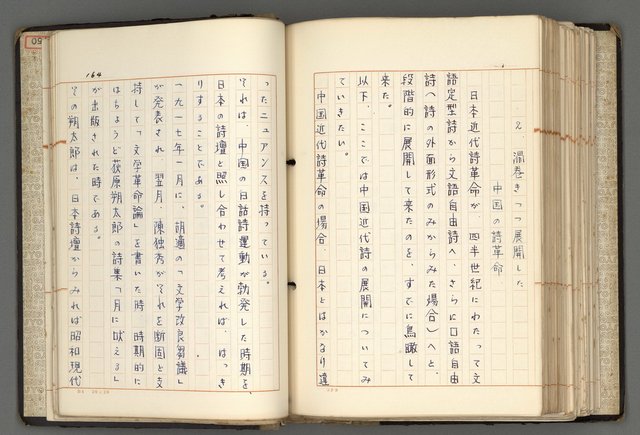 2、渦巻きつつ展開した
中国の詩革命
日本近代詩革命が、四半世紀にわたって文
語定型詩から文語自由詩へ、さらに口語自由
詩へ（詩の外面形式のみからみた場合）へと、
段階的に展開して来たのを、すでに鳥瞰して
来た。
以下、ここでは中国近代詩の展開についてみ
ていきたい。
中国近代詩革命の場合、日本とはかなり違
164
ったニュアンスを持っている。
それは、中国の白話詩運動が勃発した時期を、
日本の詩壇と照し合わせて考えれば、はっき
りすることである。
一九一七年一月に、胡適の「文学改良芻議」
が発表され、翌月、陳独秀がそれを断固と支
持して「文学革命論」を書いた時、時期的に
はちょうど萩原朔太郎の詩集「月に吠える」
が出版された時である。
その朔太郎は、日本詩壇からみれば昭和現代
50